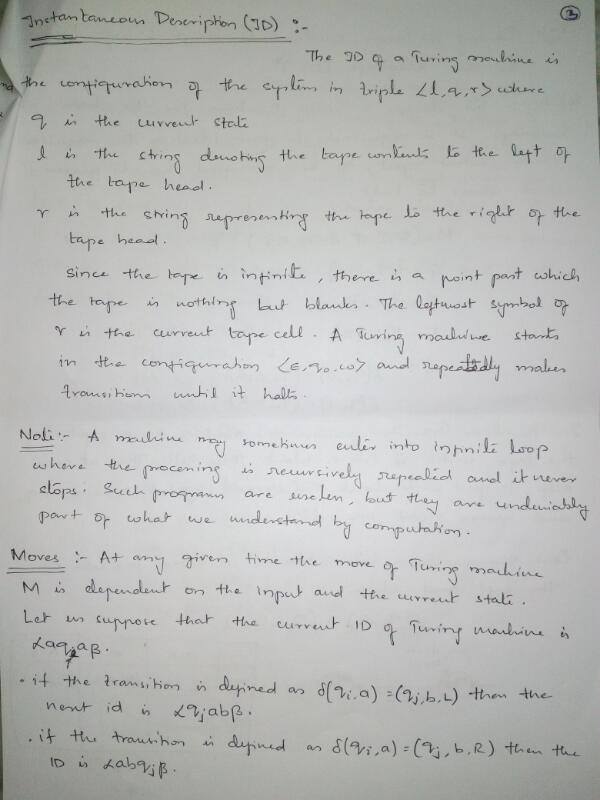 3
Instantaneous Description (ID) :-
The ID of a Turing machine is
the configuration of the system in triple <l, q, r> where
q is the current state
l is the string denoting the tape contents to the left of
the tape head.
r is the string representing the tape to the right of the
tape head.
Since the tape is infinite, there is a point part which
the tape is nothing but blanks. The leftmost symbol of
r is the current tape cell. A Turing machine starts
in the configuration <ε, q0, ω> and repeatedly makes
transitions until it halts.
Note:- A machine may sometimes enter into infinite loop
where the processing is recursively repeated and it never
stops. Such programs are useless, but they are undeniably
part of what we understand by computation.
Moves :- At any given time the move of Turing machine
M is dependent on the input and the current state.
Let us suppose that the current ID of Turing machine is
αaqiaβ.
• if the transition is defined as δ(qi, a) = (qj, b, L) then the
next id is αqjabβ.
• if the transition is defined as δ(qi, a) = (qj, b, R) then the
ID is αabqjβ.